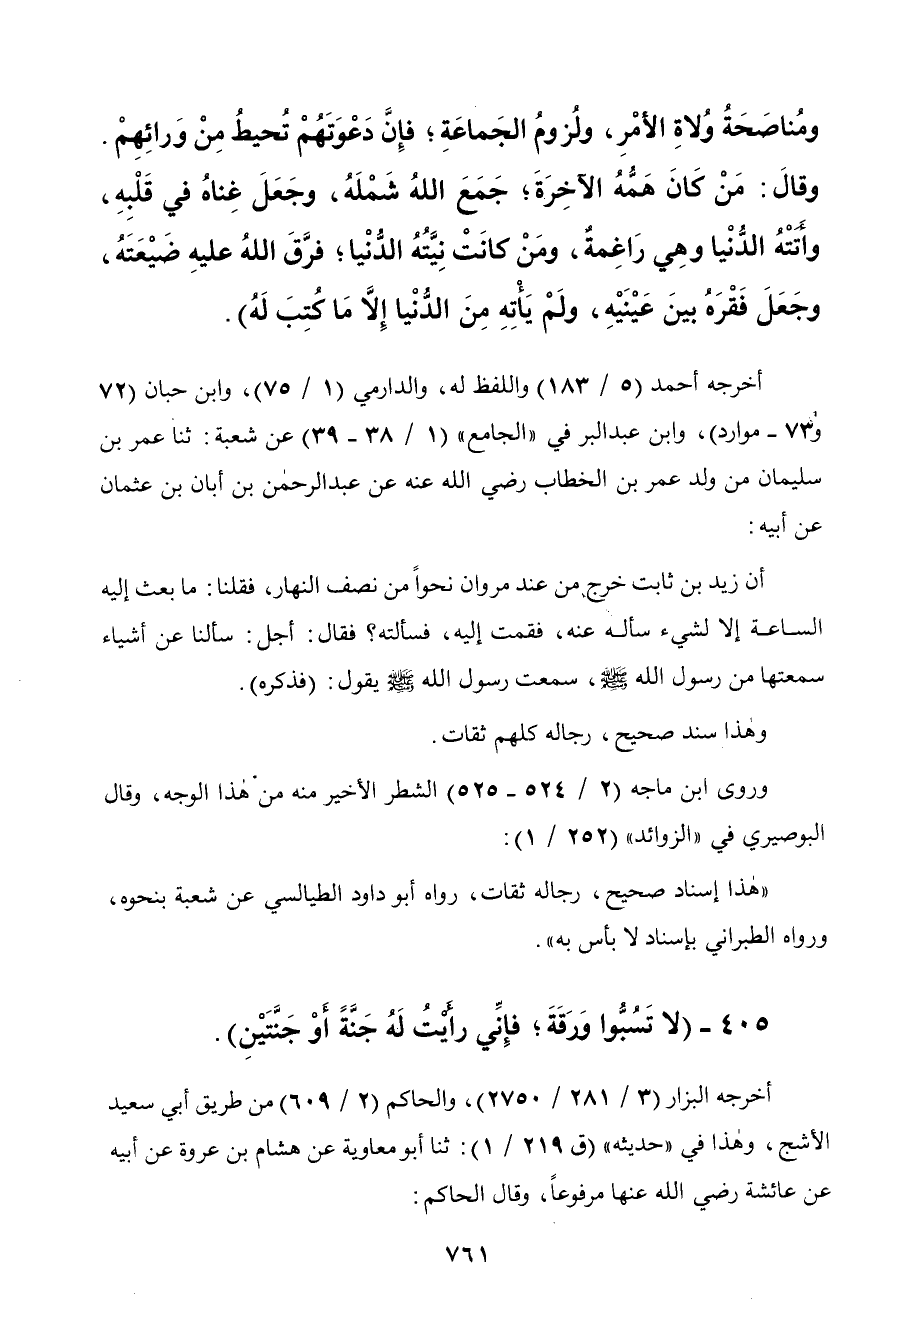 ومُناصَحَةُ وُلاةِ الأمْرِ، ولُزومُ الجَماعَةِ؛ فإنَّ دَعْوَتَهُمْ تُحيطُ مِنْ وَرائِهِمْ.
وقالَ: مَنْ كَانَ هَمُّهُ الآخِرَةَ؛ جَمَعَ اللهُ شَمْلَهُ، وجَعَلَ غِناهُ في قَلْبِهِ،
وأَتَتْهُ الدُّنْيا وهي رَاغِمةٌ، ومَنْ كانَتْ نِيَّتُهُ الدُّنْيا؛ فرَّقَ اللهُ عليهِ ضَيْعَتَهُ،
وجَعَلَ فَقْرَهُ بينَ عَيْنَيْهِ، ولَمْ يَأْتِهِ مِنَ الدُّنْيا إِلَّا مَا كُتِبَ لَهُ).
أخرجه أحمد (٥ / ١٨٣) واللفظ له، والدارمي (١ / ٧٥)، وابن حبان (٧٢
و٧٣ - موارد)، وابن عبدالبر في «الجامع» (١ / ٣٨ - ٣٩) عن شعبة: ثنا عمر بن
سليمان من ولد عمر بن الخطاب رضي الله عنه عن عبدالرحمٰن بن أبان بن عثمان
عن أبيه:
أن زيد بن ثابت خرج من عند مروان نحواً من نصف النهار، فقلنا: ما بعث إليه
الساعة إلا لشيء سأله عنه، فقمت إليه، فسألته؟ فقال: أجل: سألنا عن أشياء
سمعتها من رسول الله ﷺ، سمعت رسول الله ﷺ يقول: (فذكره).
وهٰذا سند صحيح، رجاله كلهم ثقات.
وروى ابن ماجه (٢ / ٥٢٤ - ٥٢٥) الشطر الأخير منه من هٰذا الوجه، وقال
البوصيري في «الزوائد» (٢٥٢ / ١):
«هٰذا إسناد صحيح، رجاله ثقات، رواه أبو داود الطيالسي عن شعبة بنحوه،
ورواه الطبراني بإسناد لا بأس به».
٤٠٥ - (لا تَسُبُّوا وَرَقَةَ؛ فإنِّي رأَيْتُ لَهُ جَنَّةً أَوْ جَنَّتَيْنِ).
أخرجه البزار (٣ / ٢٨١ / ٢٧٥٠)، والحاكم (٢ / ٦٠٩) من طريق أبي سعيد
الأشج، وهٰذا في «حديثه» (ق ٢١٩ / ١): ثنا أبو معاوية عن هشام بن عروة عن أبيه
عن عائشة رضي الله عنها مرفوعاً، وقال الحاكم:
٧٦١